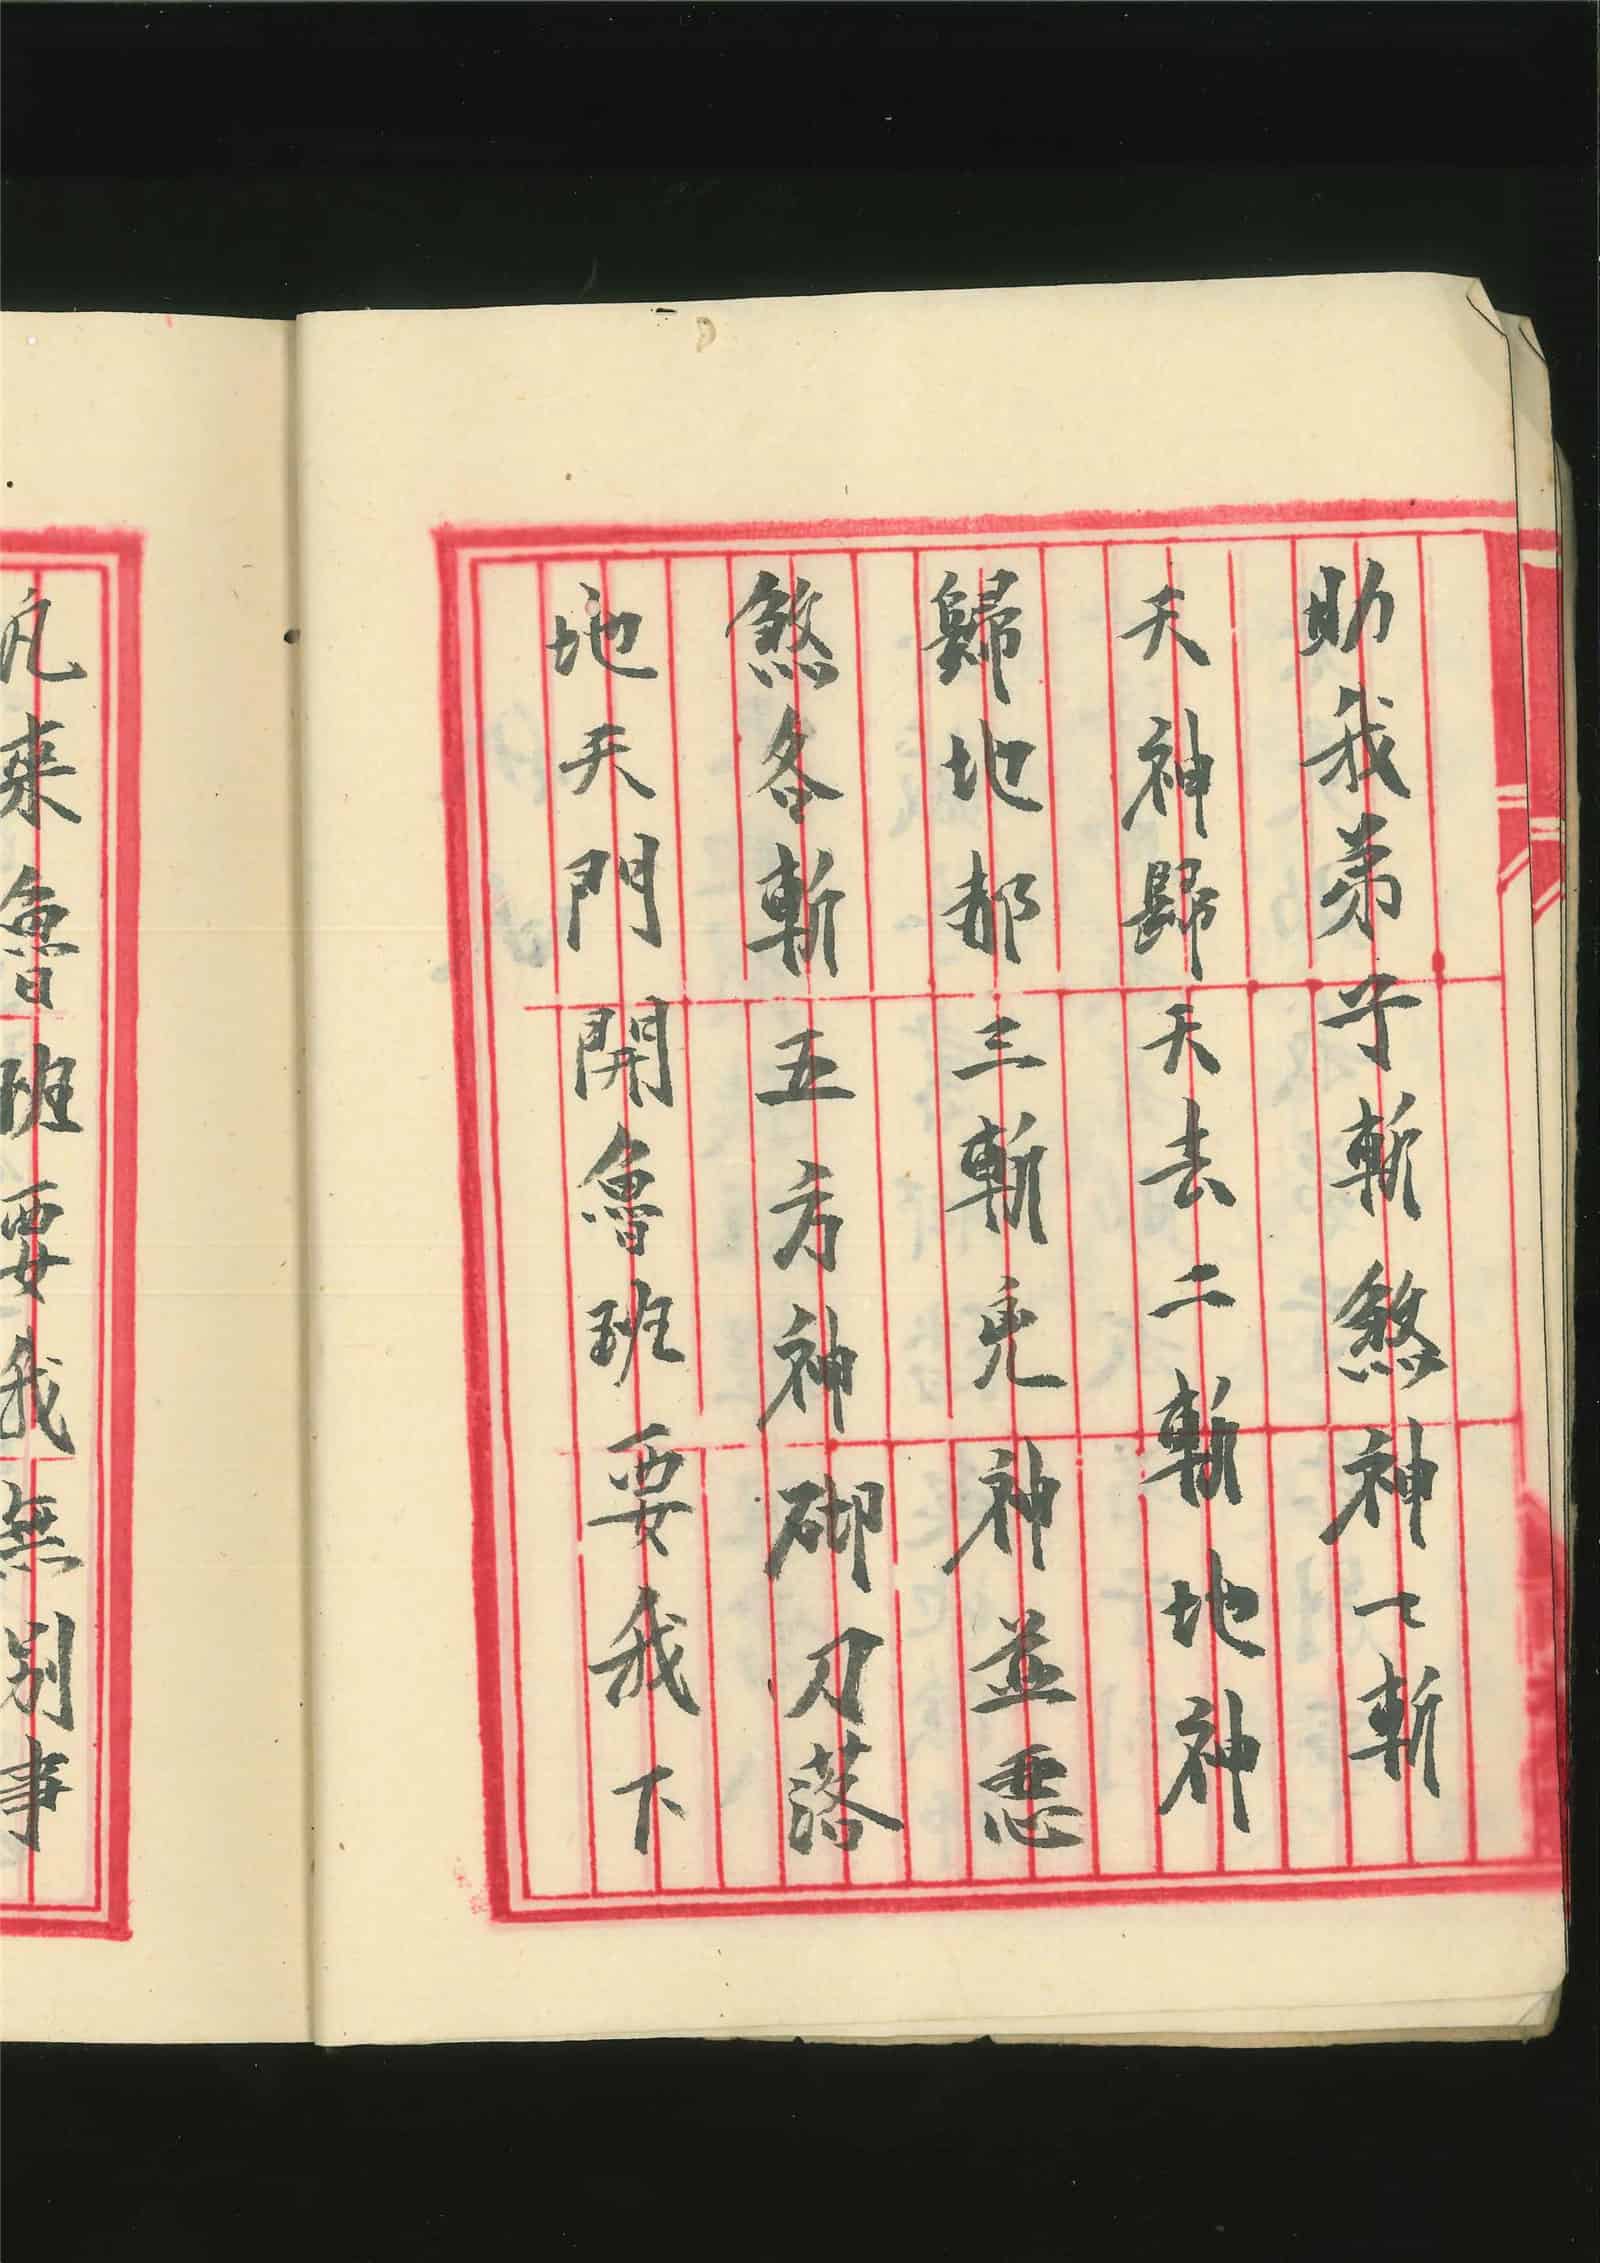 助我弟子斬煞神一斬
天神歸天去二斬地神
歸地都三斬兇神並惡
煞各斬五方神砌刀落
地天門開魯班要我下
凡來魯班要我無別事